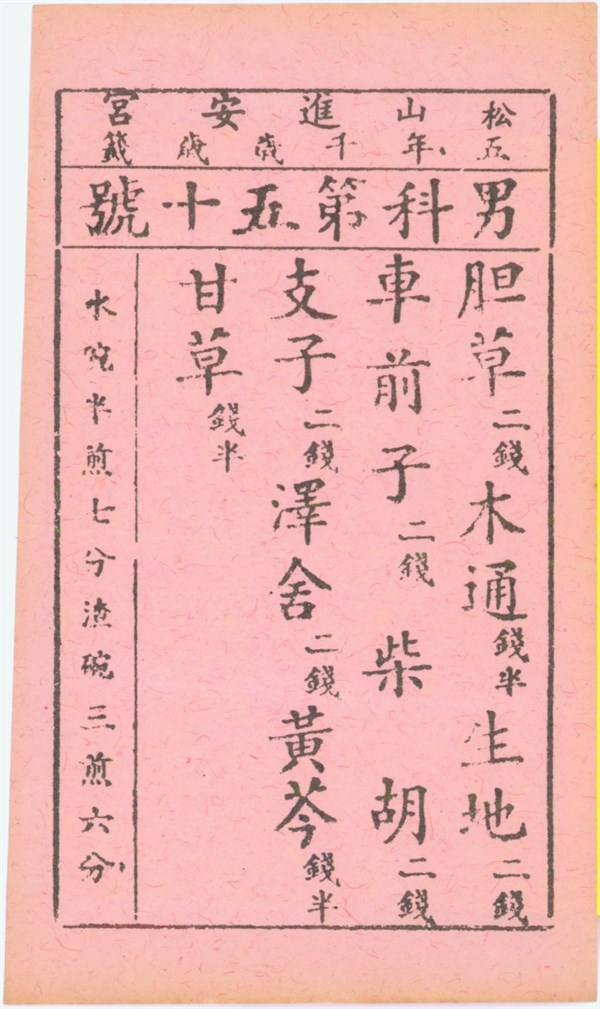 松山進安宮
五年千歲歲籤
男科第五十號
胆草二錢 木通錢半 生地二錢
車前子二錢 柴胡二錢
支子二錢 澤舍二錢 黃芩錢半
甘草錢半
水碗半煎七分渣碗三煎六分